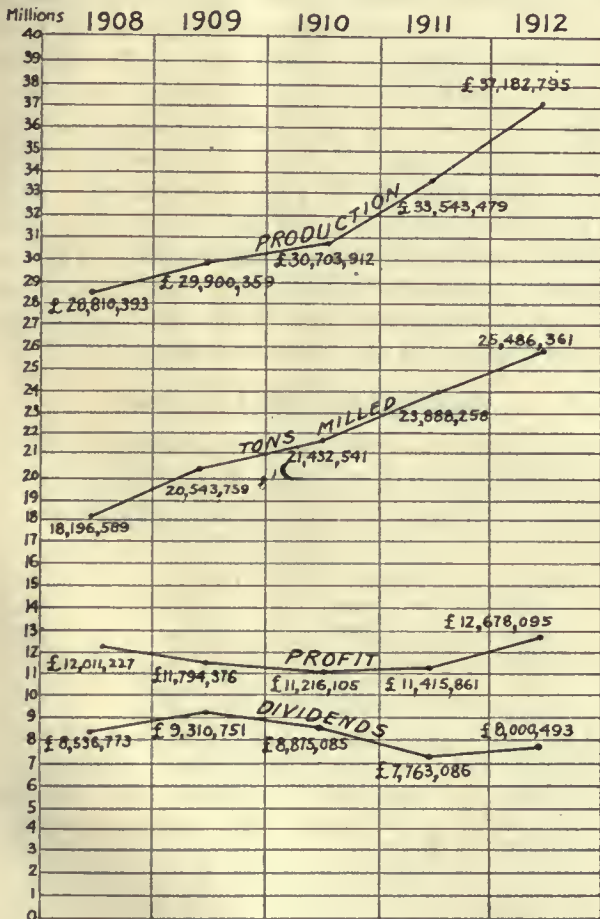 Millions
1908 1909 1910 1911 1912
40
39
38
37
36
35
34
33
32
31
30
29
28
27
26
25
24
23
22
21
20
19
18
17
16
15
14
13
12
11
10
9
8
7
6
5
4
3
2
1
0
PRODUCTION
£28,810,393
£29,900,359
£30,703,912
£33,543,479
£37,182,795
TONS MILLED
18,196,589
20,543,759
21,432,541
23,888,258
25,486,361
PROFIT
£12,011,227
£11,794,376
£11,216,105
£11,415,861
£12,678,095
DIVIDENDS
£8,536,773
£9,310,751
£8,875,085
£7,763,086
£8,000,493